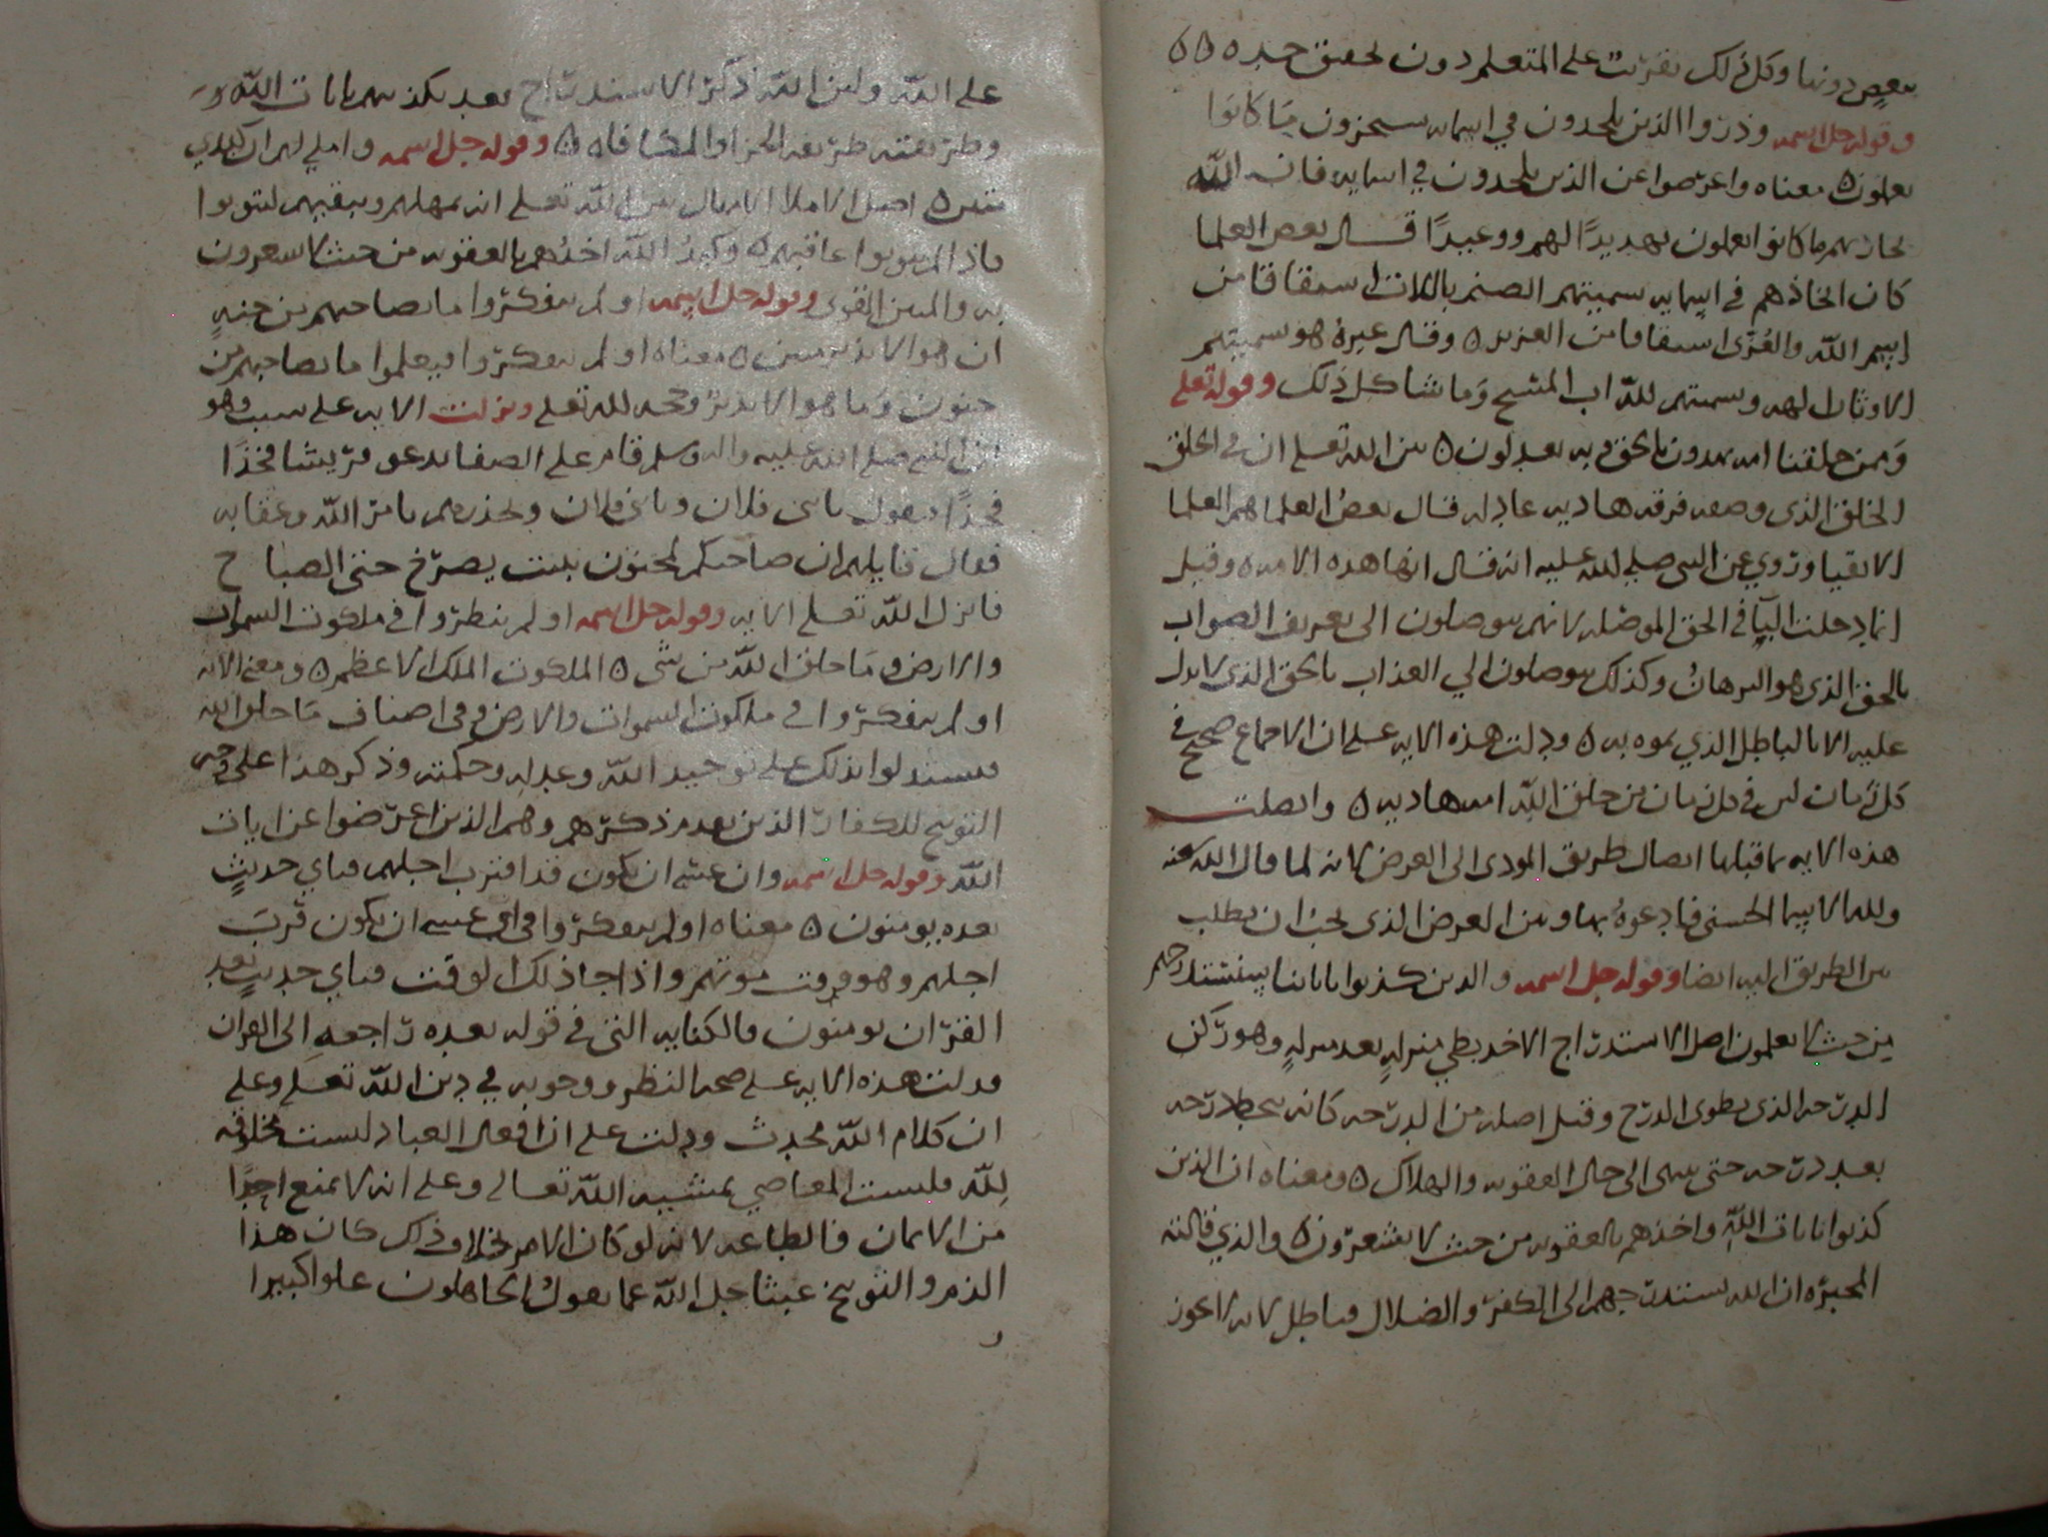 بعض دوننا وكل ذلك تقريب على المتعلم دون تحقيق حده ٥٥
وقوله جل اسمه وذروا الذين يلحدون في اسمايه سيجزون ما كانوا
يعملون ٥ معناه واعرضوا عن الذين يلحدون في اسمايه فان الله
يجازيهم ما كانوا يعملون تهديدًا لهم ووعيدًا قال بعض العلما
كان الحادهم في اسمايه تسميتهم الصنم باللات اشتقاقا من
اسم الله والعُزّى اشتقاقا من العزيز ٥ وقال غيرهُ هو تسميتهم
الاوثان الهه وتسميتهم لله اب المسيح وَما شاكل ذلك وقوله تعلى
وَممن خلقنا امه يهدون بالحق وبه يعدلون ٥ بين الله تعلى ان في الخلق
الخلق الذي وصفه فرقه هاديه عادله قال بعضُ العلما هم العلما
الاتقيا وروي عن النبي صلى الله عليه انه قال انها هذه الامه ٥ وقيل
انما دخلت البآ في الحق الموصله لانهم يوصلون الى تعريف الصواب
بالحق الذي هو البرهانُ وكذلك يوصلون الي العذاب بالحق الذي لا يدل
عليه الا بالباطل الذي يموه به ٥ ودلت هذه الايه على ان الاجماع صحيح في
كل زمان ليس في كل زمان من خلق الله امه هاديه ٥ واتصلت
هذه الايه بما قبلها اتصال طريق المودى الى العرض لانه لما قال الله
ولله الاسما الحسنى فادعوهُ بها وبين العرض الذي يجب ان يطلب
بين الطريق اليه ايضا وقوله جل اسمه والذين كذبوا باياتنا سنستدرجهم
من حيث لا يعلمون اصل الاستدراج الاخذ بطي منزلهٍ بعد منزلهٍ وهو ركن
الدرجه الذي يطوى الدرج وقيل اصله من الدرجه كانه ينحط درجه
بعد درجه حتى ينتهى الى حال العقوبه والهلاك ٥ ومعناه ان الذين
كذبوا بايات اللهِ واخذهم بالعقوبه من حيث لا يشعرون ٥ والذي قالته
المجبره ان الله يستدرجهم الى الكفر والضلال فباطل لانه لا يجوز
على الله ولان الله ذكر الاستدراج بعد تكذيبهم بايات الله
وطريقته طريقه الجزا والمكافاه ٥ وقوله جل اسمه واملي لهم ان كيدي
متين ٥ اصل الاملا الامهال بين الله تعلى انه يمهلهم ويبقيهم ليتوبوا
فاذا لم يتوبوا عاقبهم ٥ وكيدُ الله اخذُهم بالعقوبه من حيث لا يشعرون
به والمتين القوى وقوله جل اسمه اولم يتفكروا ما بصاحبهم من جنهٍ
ان هو الا نذير مبين ٥ معناه اولم يتفكروا فيعلموا ما بصاحبهم من
جنون وَما هو الا نذير وحجه لله تعلى ونزلت الايه على سبب وهو
ان النبي صلى الله عليه واله وسلم قام على الصفا يدعو قريشا فخذًا
فخذًا فيقول يا بني فلان ويا بني فلان ويحذرهم باس الله وعقابه
فقال قايلهم ان صاحبكم لمجنون بات يصرخ حتى الصباح
فانزل الله تعلى الايه وقوله جل اسمه اولم ينظروا في ملكوت السموات
والارض وَما خلق الله من شي ٥ الملكوت الملك الاعظم ٥ ومعنى الايه
اولم يتفكروا في ملكوت السموات والارض وفي اصناف مَا خلق الله
فيستدلوا بذلك على توحيد الله وعدله وحكمته وذكر هذا على وجه
التوبيخ للكفار الذين تقدم ذكرهم وهم الذين اعرضوا عن ايات
الله وقوله جل اسمه وان عسى ان يكون قد اقترب اجلهم فباي حديثٍ
بعده يومنون ٥ معناه اولم يتفكروا في ان عسى ان يكون قربَ
اجلهم وهو وقت موتهم واذا جا ذلك الوقت فباي حديثٍ بعد
القران يومنون فالكنايه التي في قوله بعده راجعه الى القران
ودلت هذه الايه على صحه النظر ووجوبه في دين الله تعلى وعلى
ان كلام الله محدث ودلت على ان افعال العباد ليست مخلوقه
لِله وليست المعاصي بمشيه الله تعالى وعلى انه لا يمنع احدًا
من الايمان والطاعه لانه لو كان الامر بخلاف ذلك كان هذا
الذم والتوبيخ عبثا جل الله عما يقول الجاهلون علوا كبيرا